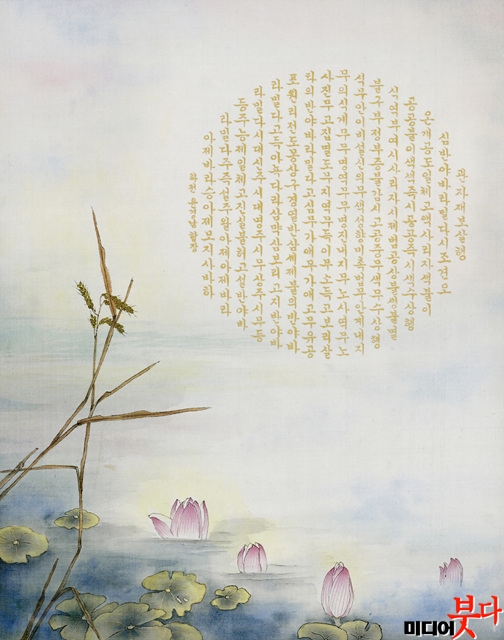 관자재보살행
심반야바라밀다시조견오
온개공도일체고액사리자색불이
공공불이색색즉시공공즉시색수상행
식역부여시사리자시제법공상불생불멸
불구부정부증불감시고공중무색무수상행
식무안이비설신의무색성향미촉법무안계내지
무의식계무무명역무무명진내지무노사역무노
사진무고집멸도무지역무득이무소득고보리살
타의반야바라밀다고심무가애무가애고무유공
포원리전도몽상구경열반삼세제불의반야바
라밀다고득아뇩다라삼먁삼보리고지반야바
라밀다시대신주시대명주시무상주시무등
등주능제일체고진실불허고설반야바
라밀다주즉설주왈아제아제바라
아제바라승아제모지사바하
미디어붓다